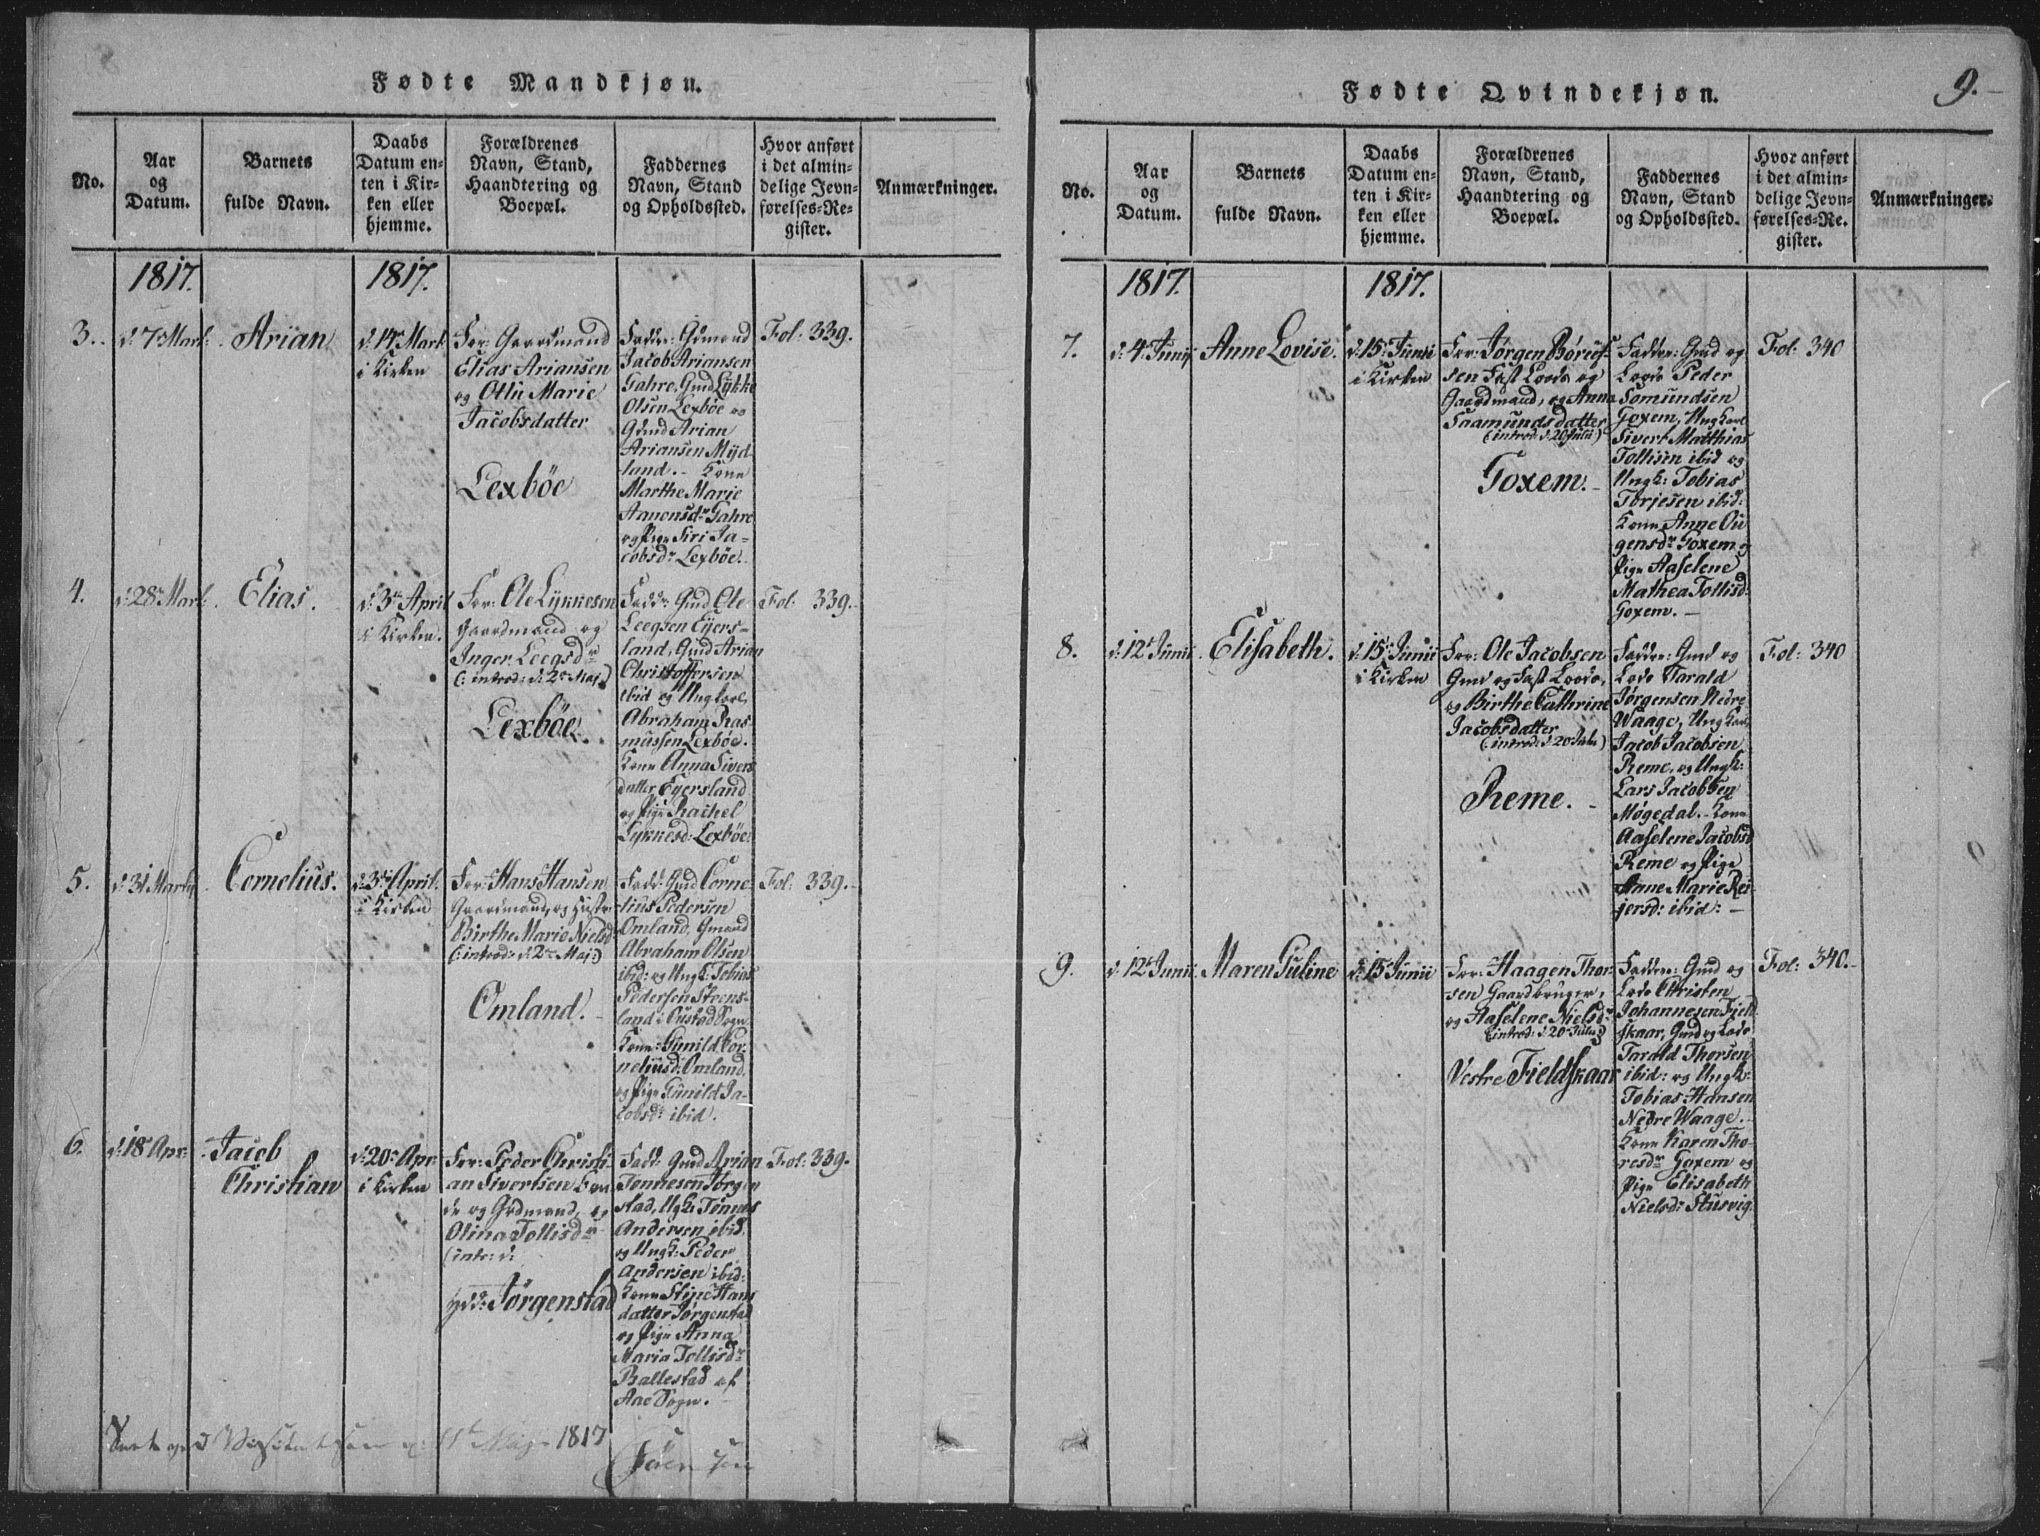 Fødte Mandkjøn.
No.
Aar
og
Datum.
Barnets
fulde Navn.
Daabs
Datum en-
ten i Kir-
ken eller
hjemme.
Forældrenes
Navn, Stand,
Haandtering og
Boepæl.
Faddernes
Navn, Stand
og Opholdssted.
Hvor anført
i det almin-
delige Jevn-
førelses-Re-
gister.
Anmærkninger.
1817.
1817.
3.
d: 7 Mart:
Arian
d: 14 Mart
i Kirken
For: Gaardmand
Elias Ariansen
og Olliu Marie
Jacobsdatter
Lexbøe
Faddr: Gdmand
Jacob Ariansen
Jahre, Gmd Lykke
Olsen Lexbøe og
Gdmd Arian
Ariansen Myd-
land. - Kone
Marthe Marie
Aanonsdr Jahre
og Pige Siri Ja-
cobsdr Lexbøe.
Fol: 339.
4.
d: 28 Mart:
Elias.
d: 3de April
i Kirken.
For: Ole Lykkesen
Gaardmand og
Inger Leegsdr
(: introd: d: 2de Maj)
Lexbøe.
Faddr: Gmd Ole
Leegsen Eyers-
land, Gmd Arian
Christoffersen
ibid og Ungkarl
Abraham Ras-
mussen Lexbøe.
Kone Anna Sivers
datter Eyersland
og Pige Rachel
Lykkesd: Lexbøe
Fol: 339.
5.
d: 31 Martij
Cornelius.
d: 3de April.
i Kirken
For: Hans Hansen
Gaardmand, og Hustr
Birthe Marie Nielsd
(: introd: d: 2de Maj:)
Omland.
Fadd: Gmd Corne-
lius Pedersen
Omland, Gmand
Abraham Olsen
ibid: og Ungk: Tobias
Pedersen Steens-
land i Qvistad Sogn
Kone: Gunild Cor-
neliusd: Omland,
og Pige Gunild Ja-
cobsdr ibid.
Fol: 339.
6.
d: 18 Apr:
Jacob
Christian
d: 20 Apr
i Kirken
For: Peder Christi
an Sivertsen
og Grdmand, og
Olina Tollisdr
(intr: d:
Jørgenstad
Fadd: Gmd Arian
Tønnesen Jørgen
stad, Ugk: Tønnes
Andersen ibid.
og Ungk: Peder
Andersen ibid:
Kone Stine Hans
datter Jørgenstad
og Pige Anna
Maria Tollisdr
Ballestad af
Aae Sogn.
Fol: 339.
Maij 1817
9.
Fødte Qvindekjøn.
No.
Aar
og
Datum.
Barnets
fulde Navn.
Daabs
Datum en-
ten i Kir-
ken eller
hjemme.
Forældrenes
Navn, Stand,
Haandtering og
Boepæl.
Faddernes
Navn, Stand
og Opholdssted.
Hvor anført
i det almin-
delige Jevn-
førelses-Re-
gister.
Anmærkninger.
1817.
1817.
7.
d: 4 Junij
Anne Lovise.
d: 15 Junii
i Kirken
For: Jørgen Børuf-
sen Fast Lods og
Gaardmand, og Anna
Saamundsdatter
(: introd: d: 20 Julii)
Goxem.
Faddre: Gmd og
Lods Peder
Somundsen
Goxem, Ungkarl
Sivert Matthias
Tollisen ibid og
Ungk: Tobias
Torjesen ibid:
Kone Anne Ou
gensdr Goxem og
Pige Aaselene
Mathea Tollisd:
Goxem. -
Fol: 340
8.
d: 12 Junii
Elisabeth.
d: 15 Junii
i Kirken
For: Ole Jacobsen
Gmd og Fast Lods,
og Birthe Cathrine
Jacobsdatter
(: introd: d: 20 Julii)
Reme.
Faddre: Gmd og
Lods Tarald
Jørgensen Nedre
Waage, Ungkarl
Jacob Jacobsen
Reme, og Ungk:
Lars Jacobsen
Møgedal. Kone
Aaselene Jacobsd
Reme og Pige
Anne Marie Rei
jersd: ibid: -
Fol: 340
9.
d: 12 Junii
Maren Guline
d: 15 Junii
For: Haagen Thor-
sen Gaardbruger,
og Aaselene Nielsdr
(: introd: d: 20 Julii)
Vestre Fieldskaar
Faddre: Gmd og
Lods Christen
Johannesen Field
skaar, Gmd og Lods
Tarald Thorsen
ibid: og Ungk:
Tobias Hansen
Nedre Waage.
Kone Karen Tho-
resdr Goxem og
Pige Elisabeth
Nielsd: Stusvig
Fol: 340.